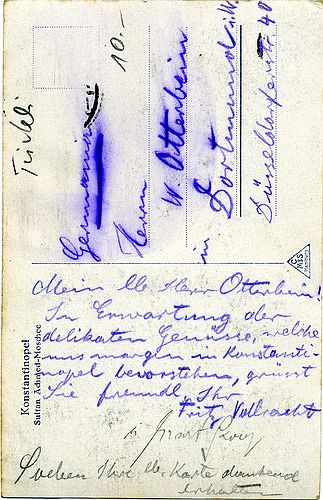 Türkei
10.-
Germania
Herrn
W. Otterbein
in Dortmund i/W.
Düsseldorferstr. 40
Konstantinopel
Sultan Achmed-Moschee
Mein lb. Herr Otterbein!
In Erwartung der
delikaten Genüsse, welche
uns morgen in Konstanti-
nopel bevorstehen, grüsst
Sie freundl. Ihr
Fritz Vollracht
Soeben Ihre lb. Karte dankend
erhalten